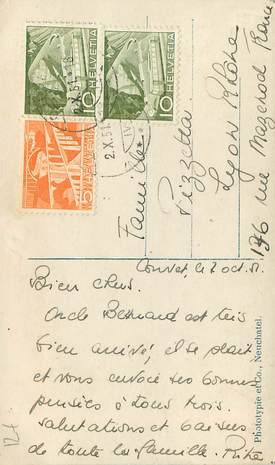 HELVETIA 10
HELVETIA 10
HELVETIA 5
2.X.51
2.X.51
Famille
Pizzetta
Lyon Rhône
176 rue Mazenod
Couvet, le 2 oct. 51.
Bien chers.
Oncle Bernard est très
bien arrivé, il se plait
et vous envoie ses bonnes
pensées à tous trois.
salutations et baisers
de toute la famille. Rita
Phototypie et Co., Neuchatel.